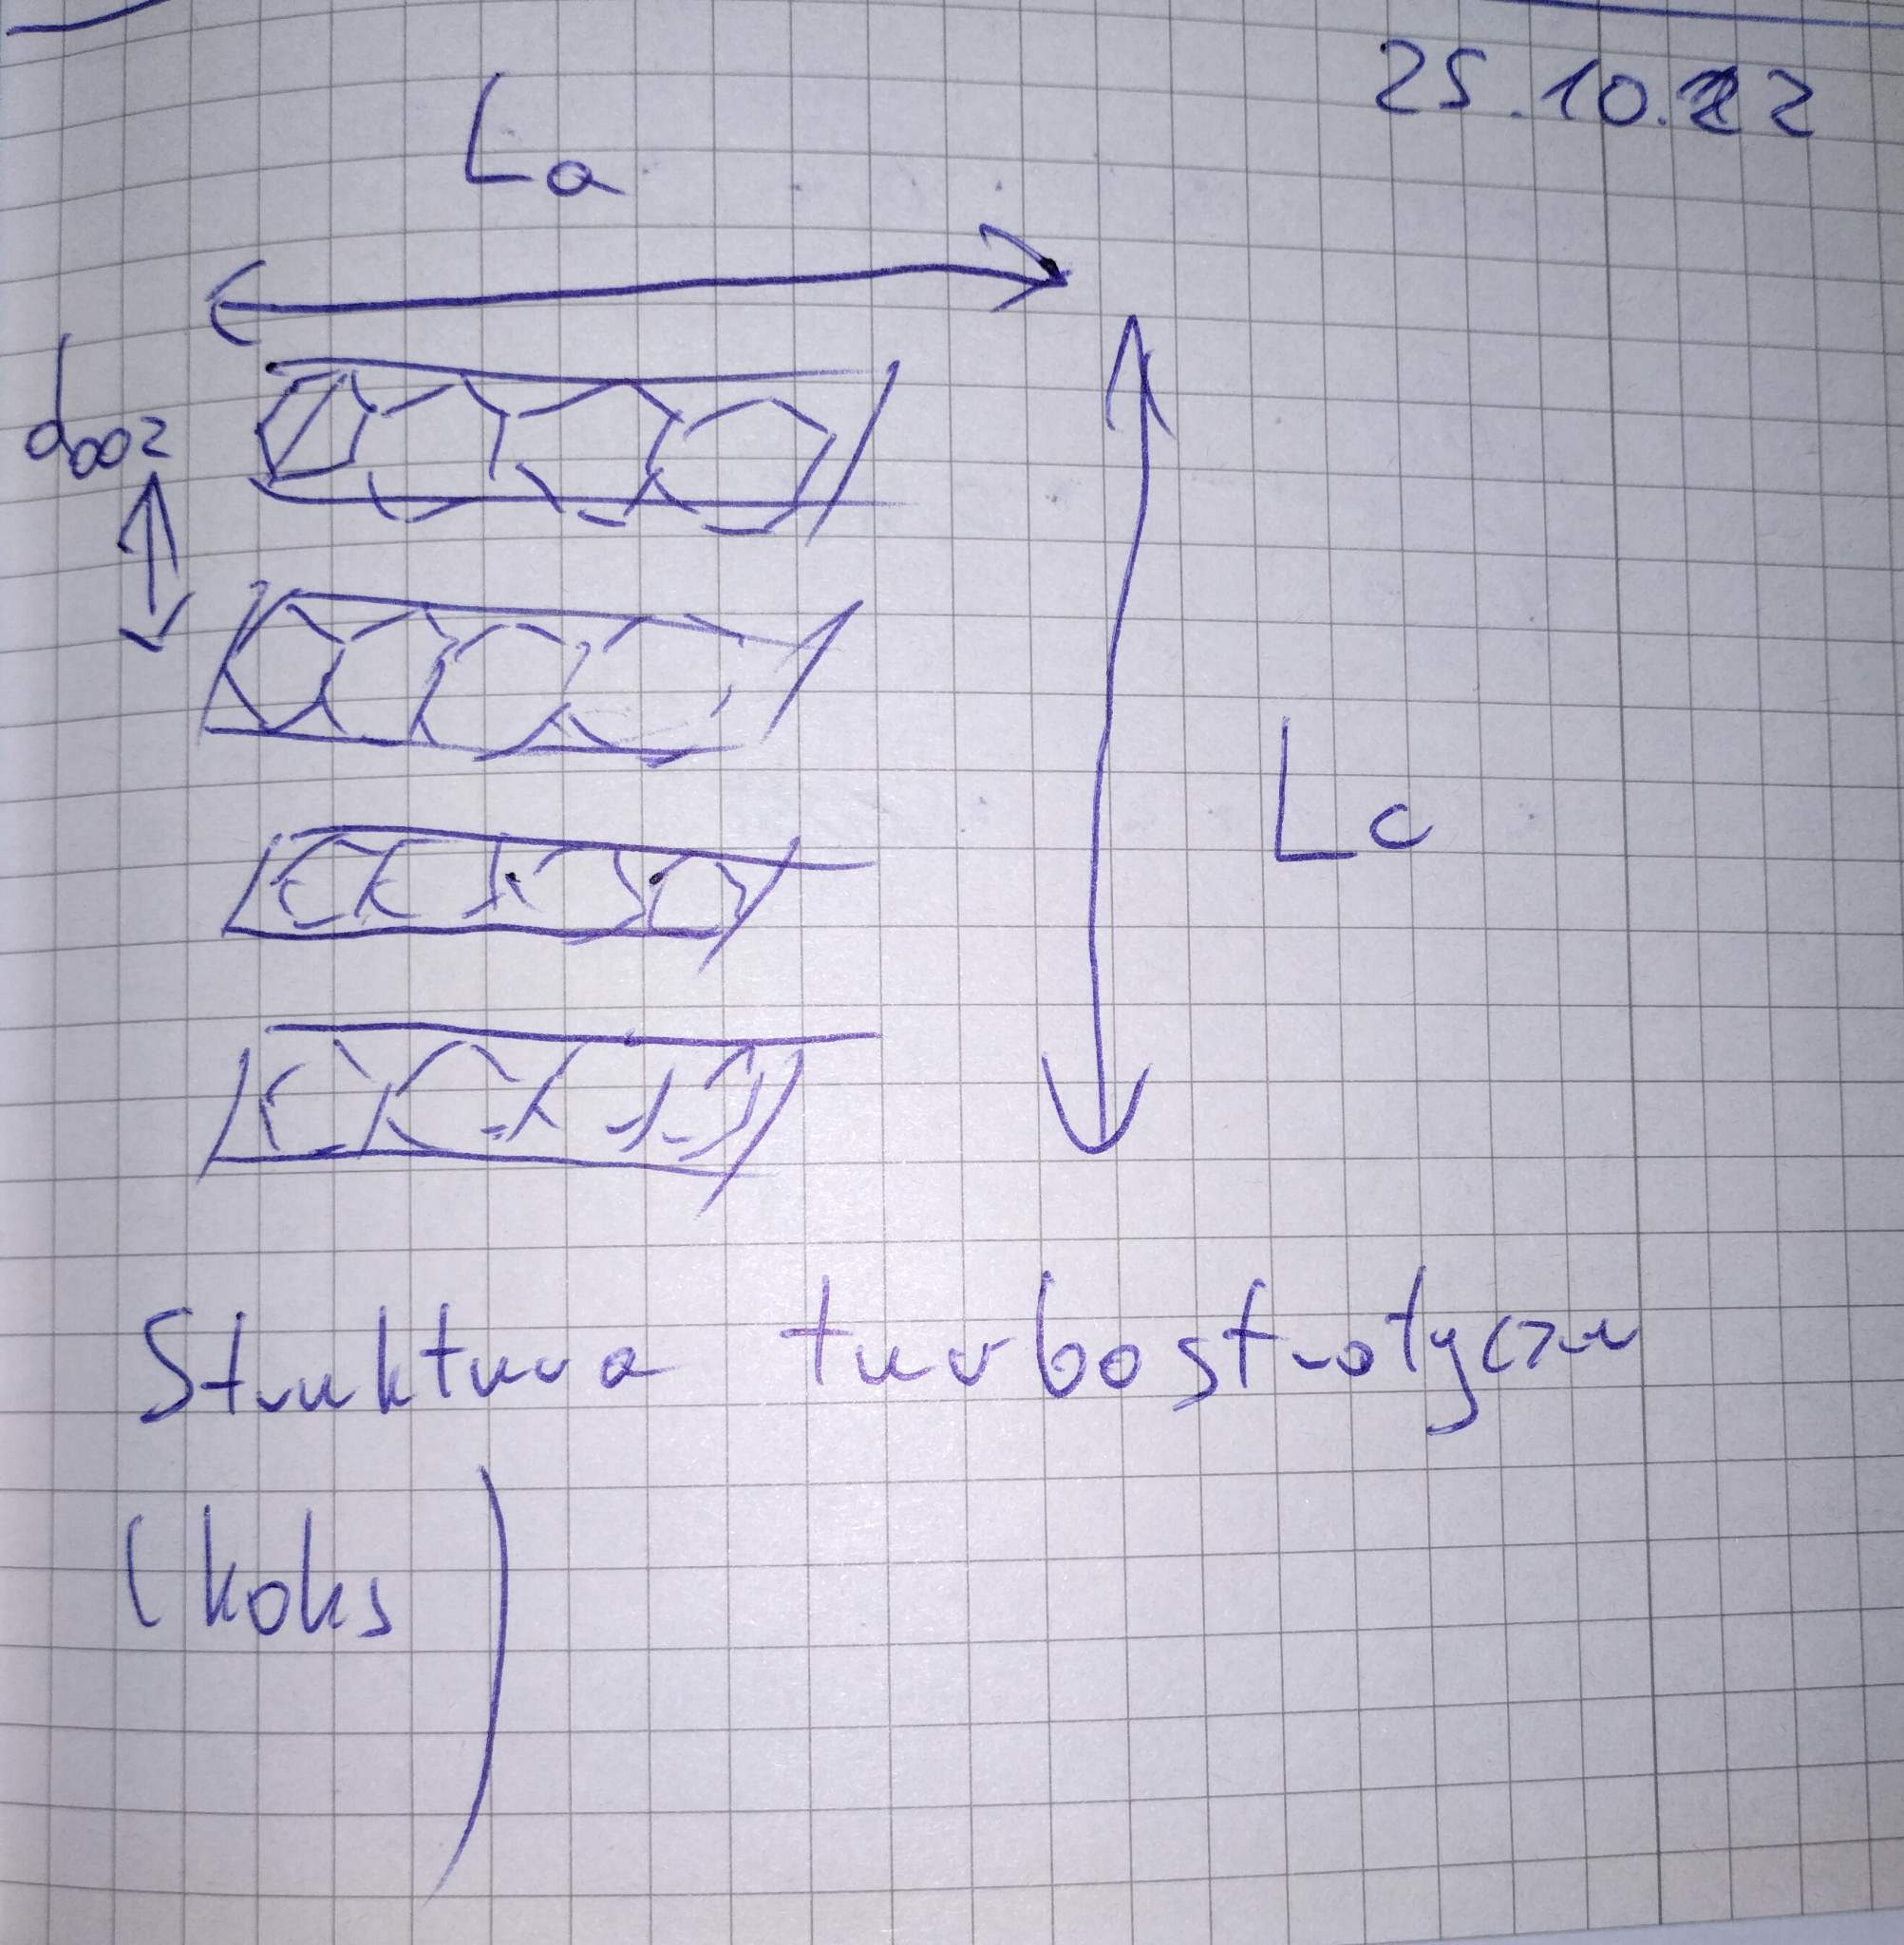 25.10.22
La
d002
Lc
Struktura turbostratyczna
(koks)